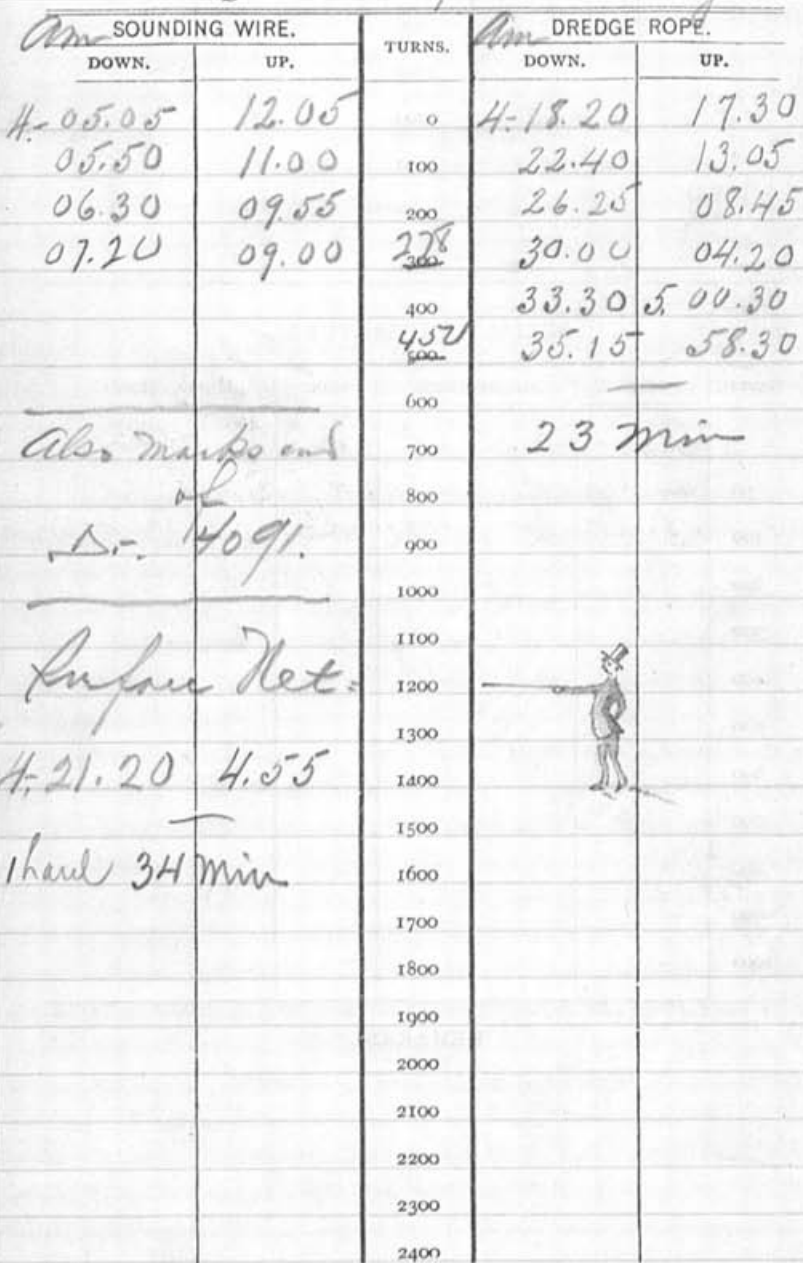 am SOUNDING WIRE. TURNS. am DREDGE ROPE.
DOWN. UP. DOWN. UP.
4-05.05 12.05 0 4-18.20 17.30
05.50 11.00 100 22.40 13.05
06.30 09.55 200 26.25 08.45
07.20 09.00 278 300 30.00 04.20
400 33.30 5. 00.30
450 500 35.15 58.30
600
Also marks end 700 23 Min
of 800
D-. 4091. 900
1000
1100
Surface Net- 1200
1300
4-21.20 4.55 1400
1500
1 haul 34 Min 1600
1700
1800
1900
2000
2100
2200
2300
2400